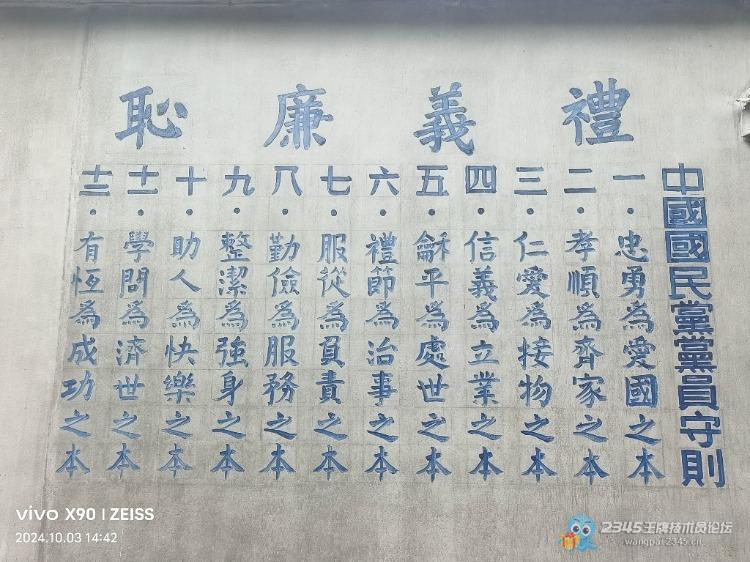 禮義廉恥
中國國民黨黨員守則
一·忠勇為愛國之本
二·孝順為齊家之本
三·仁愛為接物之本
四·信義為立業之本
五·龢平為處世之本
六·禮節為治事之本
七·服從為負責之本
八·勤儉為服務之本
九·整潔為強身之本
十·助人為快樂之本
十一·學問為濟世之本
十二·有恆為成功之本
vivo X90 | ZEISS
2024.10.03 14:42
2345王牌技术员论坛
wangpai.2345.cn